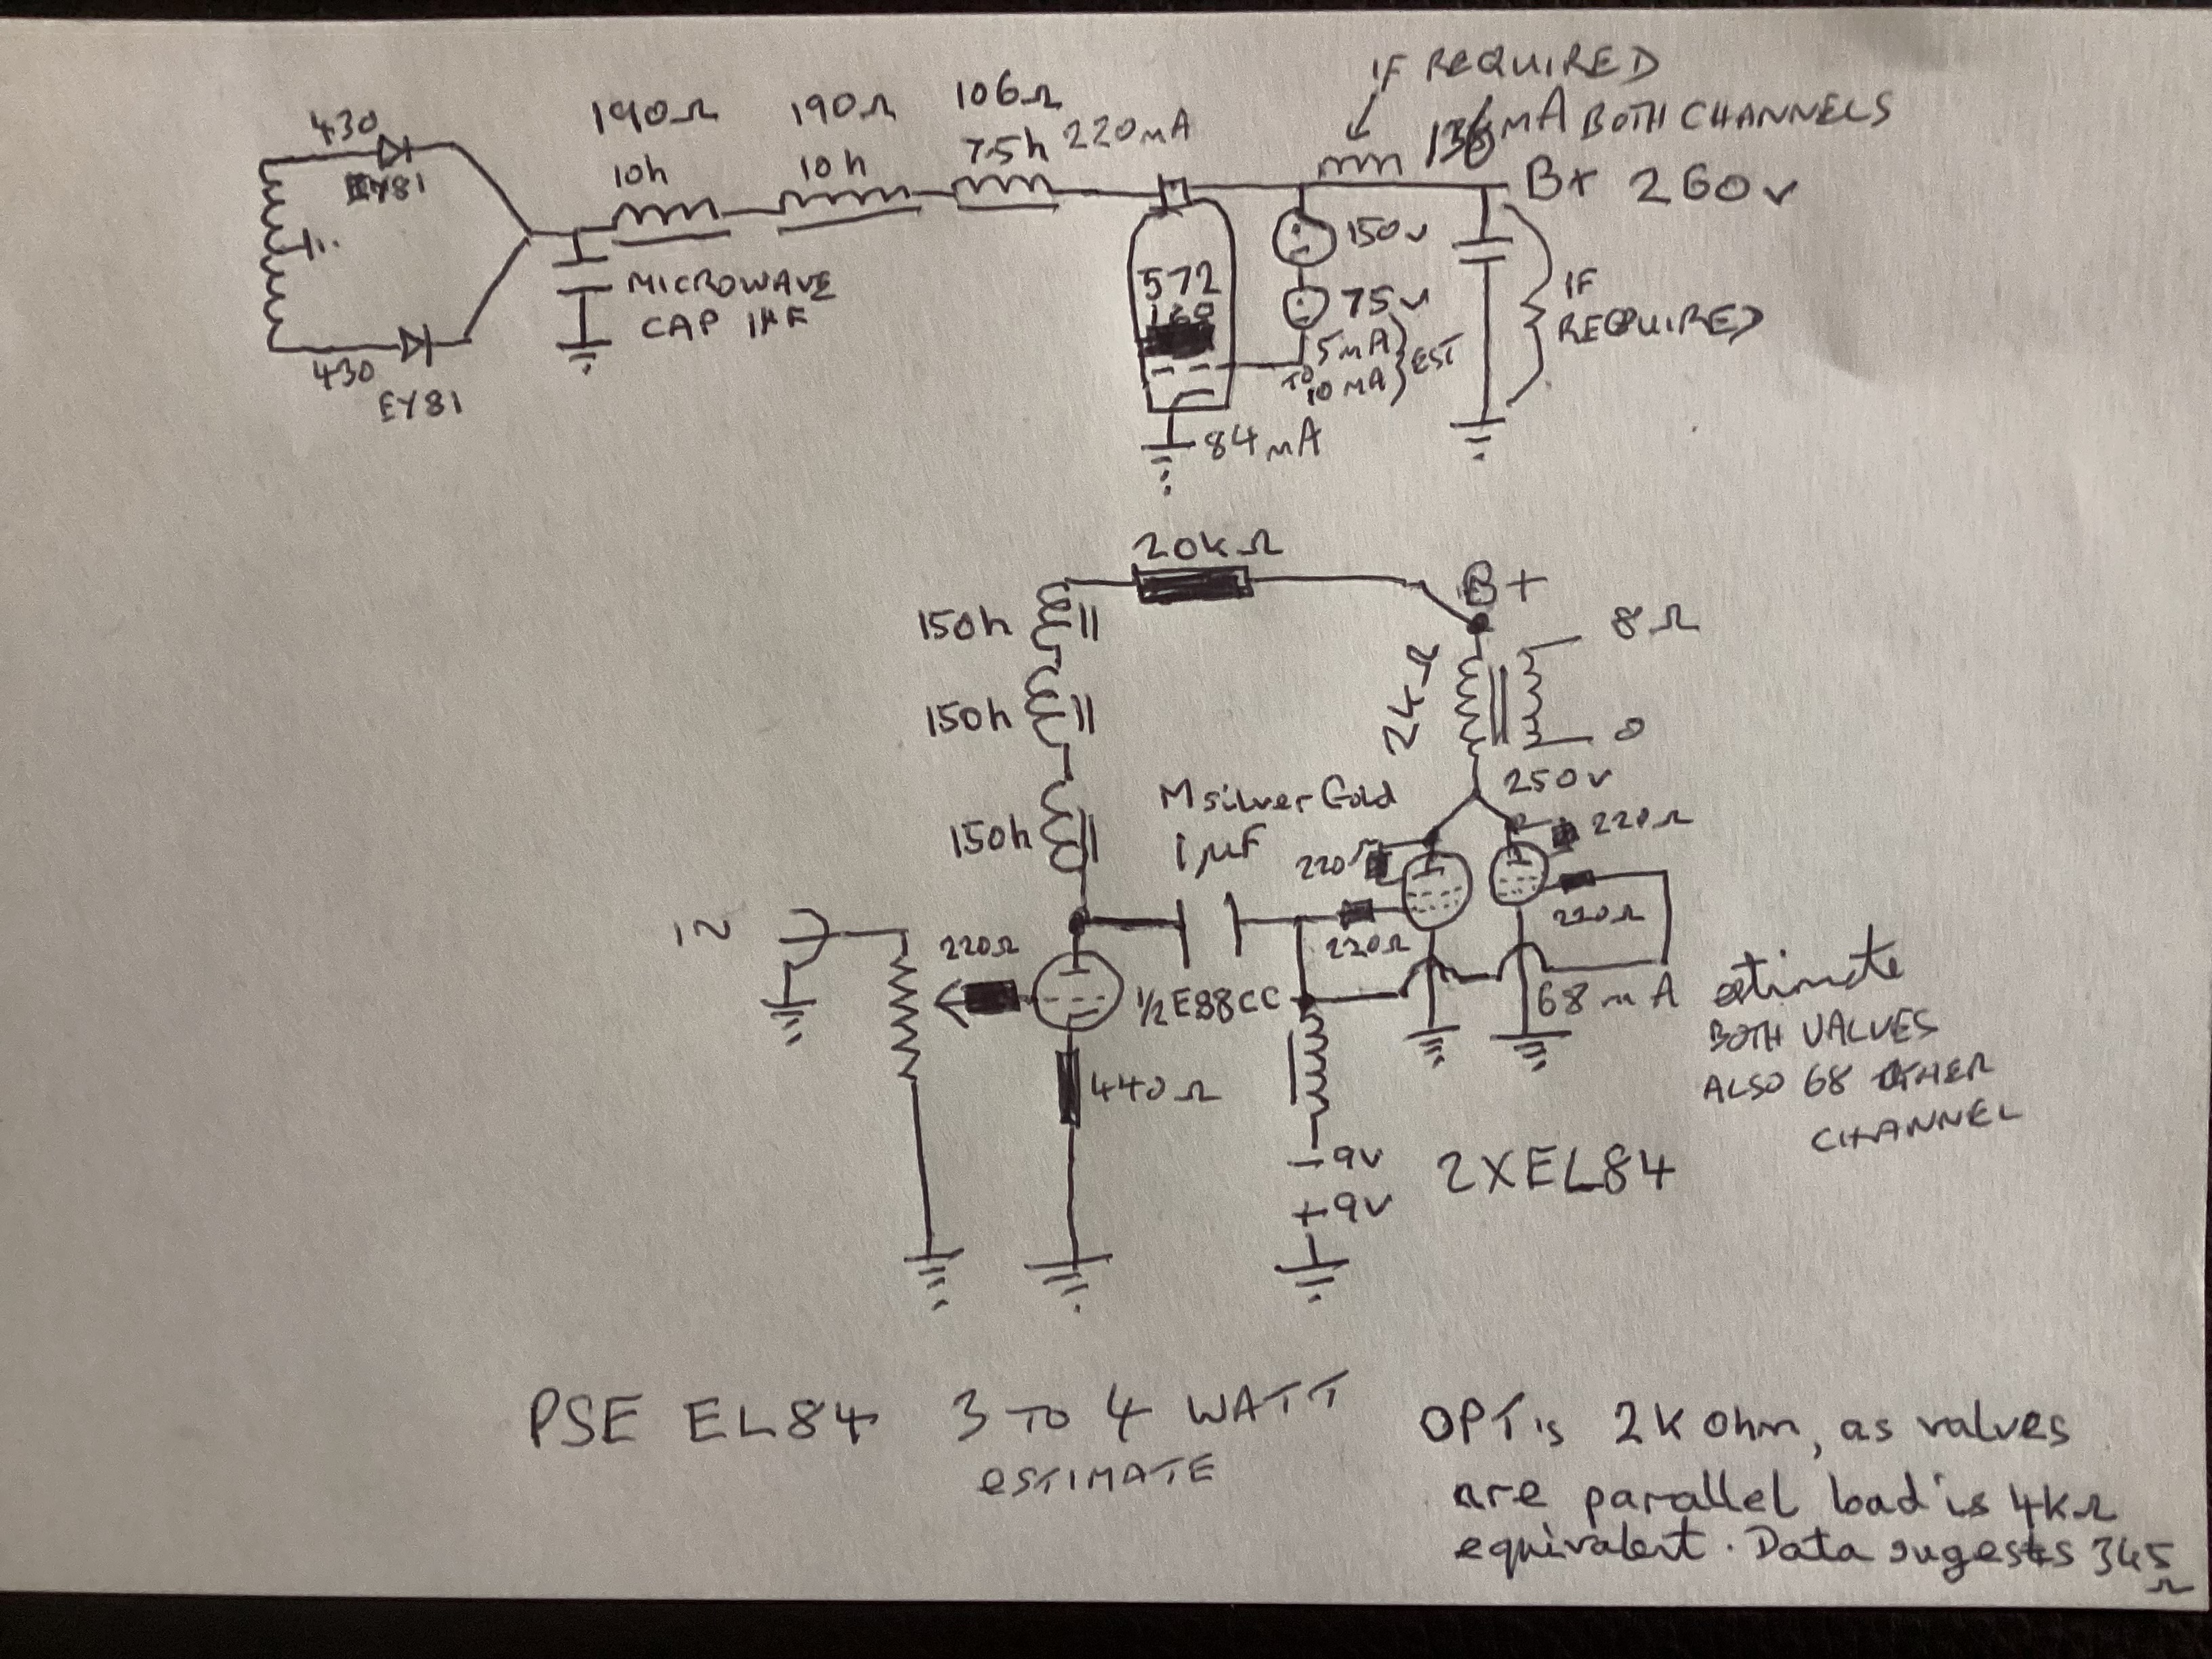 IF REQUIRED
mA BOTH CHANNELS
430
EY81
190Ω
10h
190Ω
10h
106Ω
75h
220mA
B+ 260v
MICROWAVE
CAP 1µF
430
EY81
572
160
150v
75v
5mA
TO
10mA
EST
84mA
IF
REQUIRED
20kΩ
B+
150h
150h
150h
2kΩ
8Ω
0
250v
M silver Gold
1µF
220Ω
220Ω
220Ω
220Ω
IN
220Ω
½E88CC
440Ω
68mA estimate
BOTH VALVES
ALSO 68 OTHER
CHANNEL
-9v
+9v
2XEL84
PSE EL84 3 TO 4 WATT
ESTIMATE
OPT is 2K Ohm, as valves
are parallel load is 4kΩ
equivalent. Data sugests 345
Ω